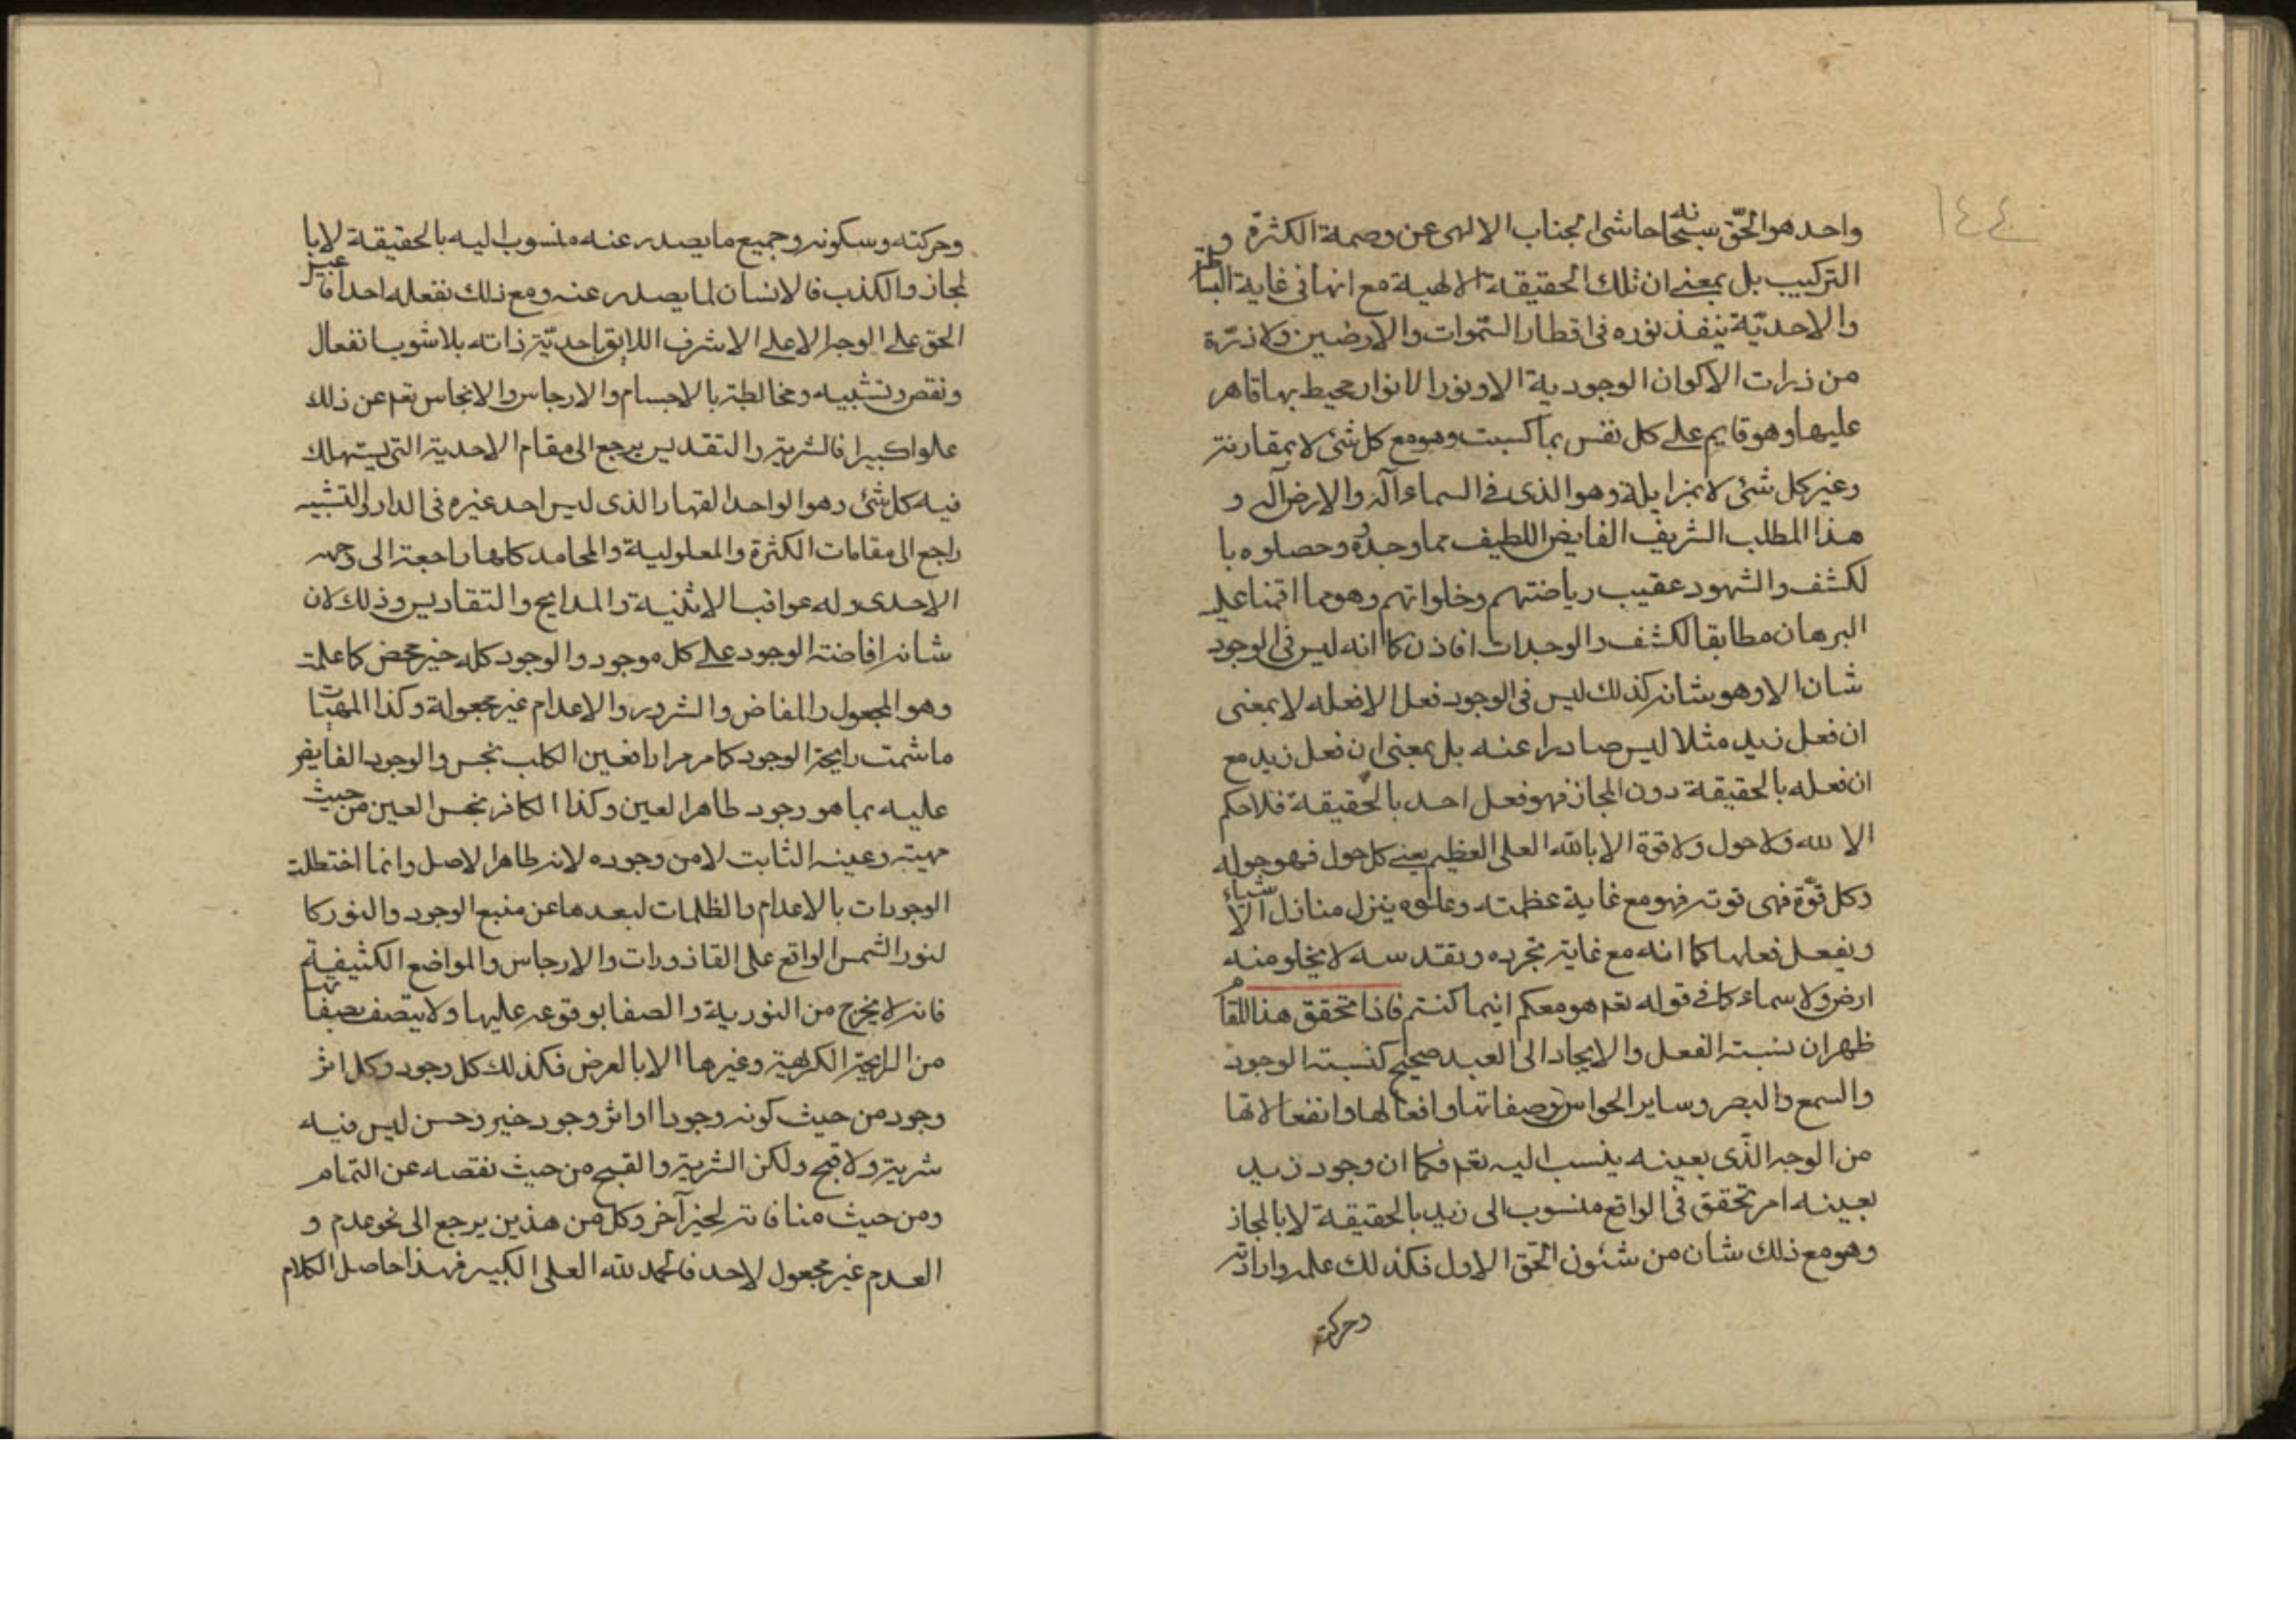 ١٤٤
واحد هو الحق سبحانه حاشى الجناب الالهى عن وصمة الكثرة و
التركيب بل بمعنى ان تلك الحقيقة الالهية مع انها فى غاية البساطة
والاحدية ينفذ نوره فى اقطار السموات والارضين ولا ذرة
من ذرات الاكوان الوجودية الا ونور الانوار محيط بها قاهر
عليها وهو قايم على كل نفس بما كسبت وهو مع كل شئ لا بمقارنة
وغير كل شئ لا بمزايلة وهو الذى فى السماء آله والارض آله و
هذا المطلب الشريف الفايض اللطيف مما وجدوه وحصلوه با
لكشف والشهود عقيب رياضتهم وخلواتهم وهو مما اقمنا عليه
البرهان مطابقا لكشف والوجدات افاذن كما انه ليس فى الوجود
شان الا وهو شانه كذلك ليس فى الوجود فعل الا فعله لا بمعنى
ان فعل زيد مثلا ليس صادرا عنه بل بمعنى ان فعل زيد مع
ان فعله بالحقيقة دون المجاز فهو فعل احد بالحقيقة فلا حكم
الا لله ولا حول ولا قوة الا بالله العلى العظيم يعنى كل حول فهو حوله
وكل قوة فهى قوته فهو مع غاية عظمته وعلوه ينزل منازل الاشياء
ويفعل فعلها كما انه مع غاية تجرده وتقدسه لا يخلو منه
ارض ولا سماء كما فى قوله تعم هو معكم اينما كنتم فاذا تحقق هذا المقام
ظهر ان نسبة الفعل والايجاد الى العبد صحيح كنسبة الوجود
والسمع والبصر وساير الحواس وصفاتها وافعالها وانفعالاتها
من الوجه الذى بعينه ينسب اليه تعم فكما ان وجود زيد
بعينه امر تحقق فى الواقع منسوب الى زيد بالحقيقة لا بالمجاز
وهو مع ذلك شان من شئون الحق الاول فكذلك علمه وارادته
وحركته
وحركته وسكونه وجميع ما يصدر عنه منسوب اليه بالحقيقة لا با
لمجاز والكذب فالانسان لما يصدر عنه ومع ذلك نفعله احد افاعيل
الحق على الوجه الاعلى الاشرف اللايق باحدية ذاته بلا شوب انفعال
ونقص وتشبيه ومخالطة بالاجسام والارجاس والانجاس تعم عن ذلك
علوا كبيرا فالشرية والتقديس يرجع الى مقام الاحدية التى يستهلك
فيه كل شئ وهو الواحد القهار الذى ليس احد غيره فى الدار والتشبيه
راجع الى مقامات الكثرة والمعلولية والمحامد كلها راجعة الى وجهه
الاحدى وله عواقب الاثنية والمدايح والتقاديس وذلك لان
شانه افاضة الوجود على كل موجود والوجود كله خير محض كما علمت
وهو المجعول والمفاض والشرور والاعدام غير مجعولة وكذا المهيات
ما شمت رايحة الوجود كما مر مرارا فعين الكلب نجس والوجود الفايض
عليه بما هو وجود طاهر العين وكذا الكافر نجس العين من حيث
مهيته وعينه الثابت لا من وجوده لانه طاهر الاصل وانما اختطلت
الوجودات بالاعدام والظلمات لبعدها عن منبع الوجود والنور كا
لنور الشمس الواقع على القاذورات والارجاس والمواضع الكثيفية
فانه لا يخرج من النورية والصفا بوقوعه عليها ولا يتصف بصفاتها
من الرايحة الكريهة وغيرها الا بالعرض فكذلك كل وجود وكل اثر
وجود من حيث كونه وجودا او اثر وجود خير وحسن ليس فيه
شرية ولا قبح ولكن الشرية والقبح من حيث نقصه عن التمام
ومن حيث منافاته لخير آخر وكل من هذين يرجع الى نحو عدم و
العدم غير مجعول لاحد فالحمد لله العلى الكبير فهذا حاصل الكلام